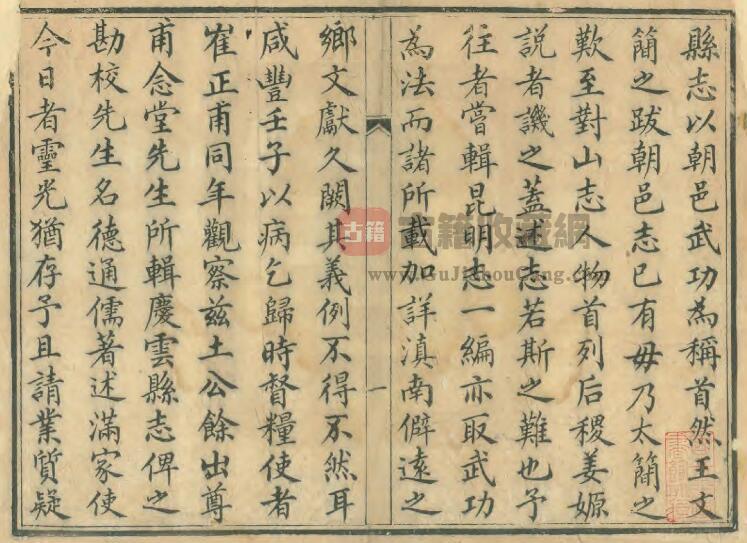 縣志以朝邑武功為稱首然王文
簡之跋朝邑志已有毋乃太簡之
歎至對山志人物首列后稷姜嫄
說者譏之蓋述志若斯之難也予
往者嘗輯昆明志一編亦取武功
為法而諸所載加詳滇南僻遠之
一
鄉文獻久闕其義例不得不然耳
咸豐壬子以病乞歸時督糧使者
崔正甫同年觀察茲土公餘出尊
甫念堂先生所輯慶雲縣志俾之
勘校先生名德通儒著述滿家使
今日者靈光猶存予且請業質疑
古籍
古籍收藏網
www.GuJiShouCang.com